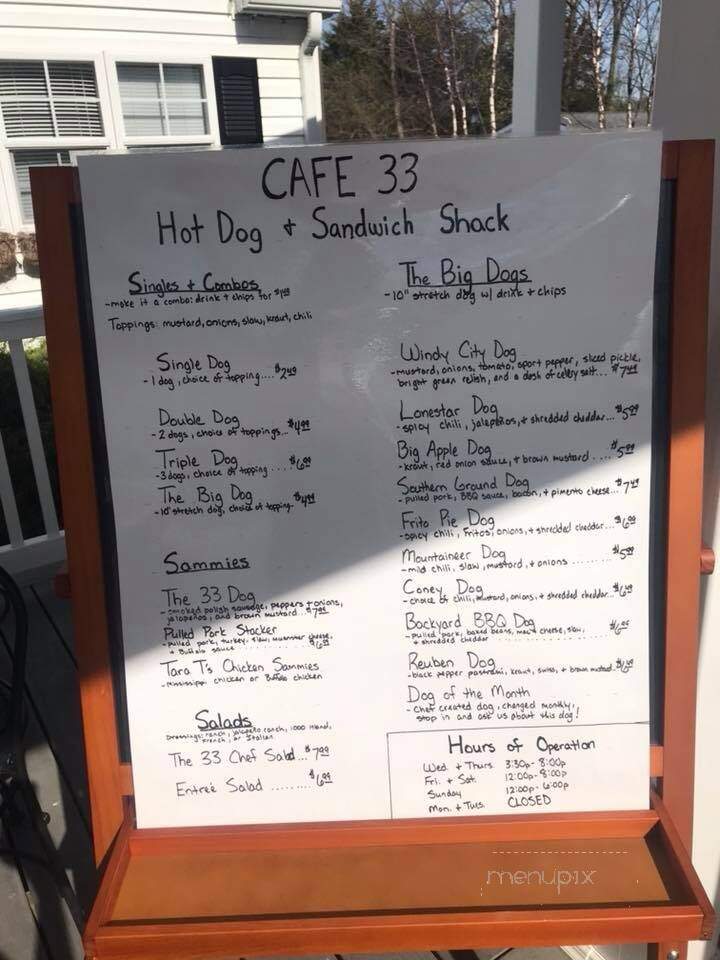 CAFE 33
Hot Dog + Sandwich Shack
Singles + Combos
-make it a combo: drink + chips for
Toppings: mustard, onions, slaw, kraut, chili
Single Dog
-1 dog, choice of topping.... $2.49
Double Dog
-2 dogs, choice of toppings... $4.99
Triple Dog
-3 dogs, choice of topping ....
The Big Dog
-10" stretch dog, choice of topping- $4.99
Sammies
The 33 Dog
-smoked polish sausage, peppers + onions,
jalapeños, and brown mustard..
Pulled Pork Stacker
-pulled pork, turkey, slaw, muenster cheese,
+ Buffalo sauce
Tara T's Chicken Sammies
-mississippi chicken or Buffalo chicken
Salads
Dressings: ranch, jalapeño ranch, 1000 island,
French, or Italian
The 33 Chef Salad... $7.99
Entreé Salad .........
The Big Dogs
-10" stretch dog w/ drink + chips
Windy City Dog
-mustard, onions, tomato, sport pepper, sliced pickle,
bright green relish, and a dash of celery salt... $7.49
Lonestar Dog
-spicy chili, jalapeños, + shredded cheddar... $5.99
Big Apple Dog
-kraut, red onion sauce, + brown mustard .... $5.99
Southern Ground Dog
-pulled pork, BBQ sauce, bacon, + pimento cheese... $7.49
Frito Pie Dog
-spicy chili, Fritos, onions, + shredded cheddar...
Mountaineer Dog
-mild chili, slaw, mustard, + onions ........ $5.99
Coney Dog
-choice of chili, mustard, onions, + shredded cheddar..
Backyard BBQ Dog
-pulled pork, baked beans, mac + cheese, slaw,
+ shredded cheddar
Reuben Dog
-black pepper pastrami, kraut, swiss, + brown mustard.
Dog of the Month
- Chef created dog, changed monthly,
stop in and ask us about this dog!
Hours of Operation
Wed. + Thurs 3:30p - 8:00p
Fri. + Sat. 12:00p - 8:00p
Sunday 12:00p - 6:00p
Mon. + Tues. CLOSED
menupix